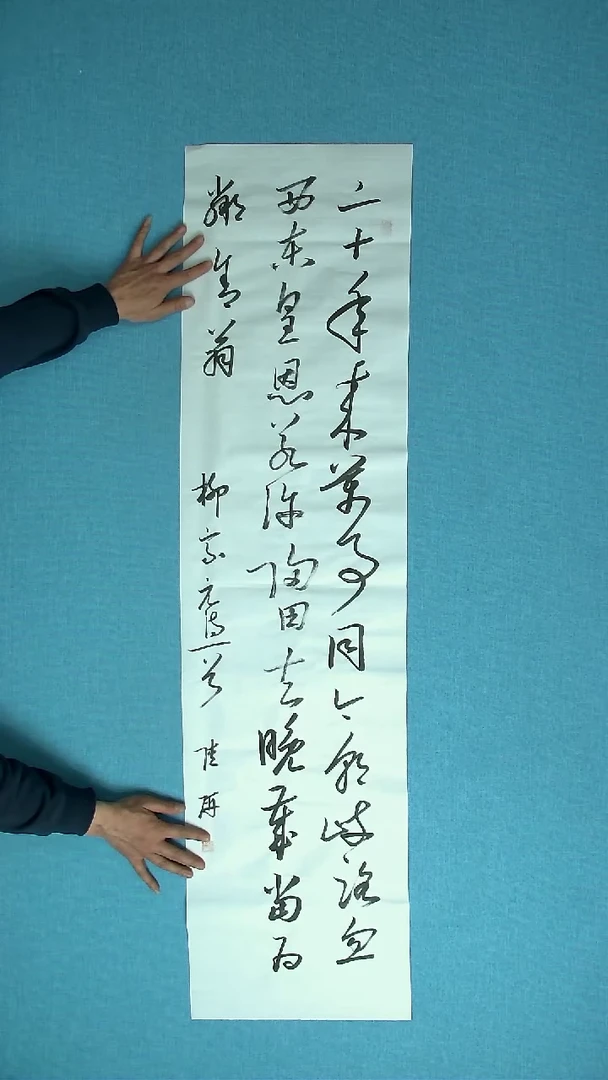 二十年来萬事同今朝歧路忽
西东皇恩若许归田去晚歲當为
鄰舍翁 柳宗元诗一首